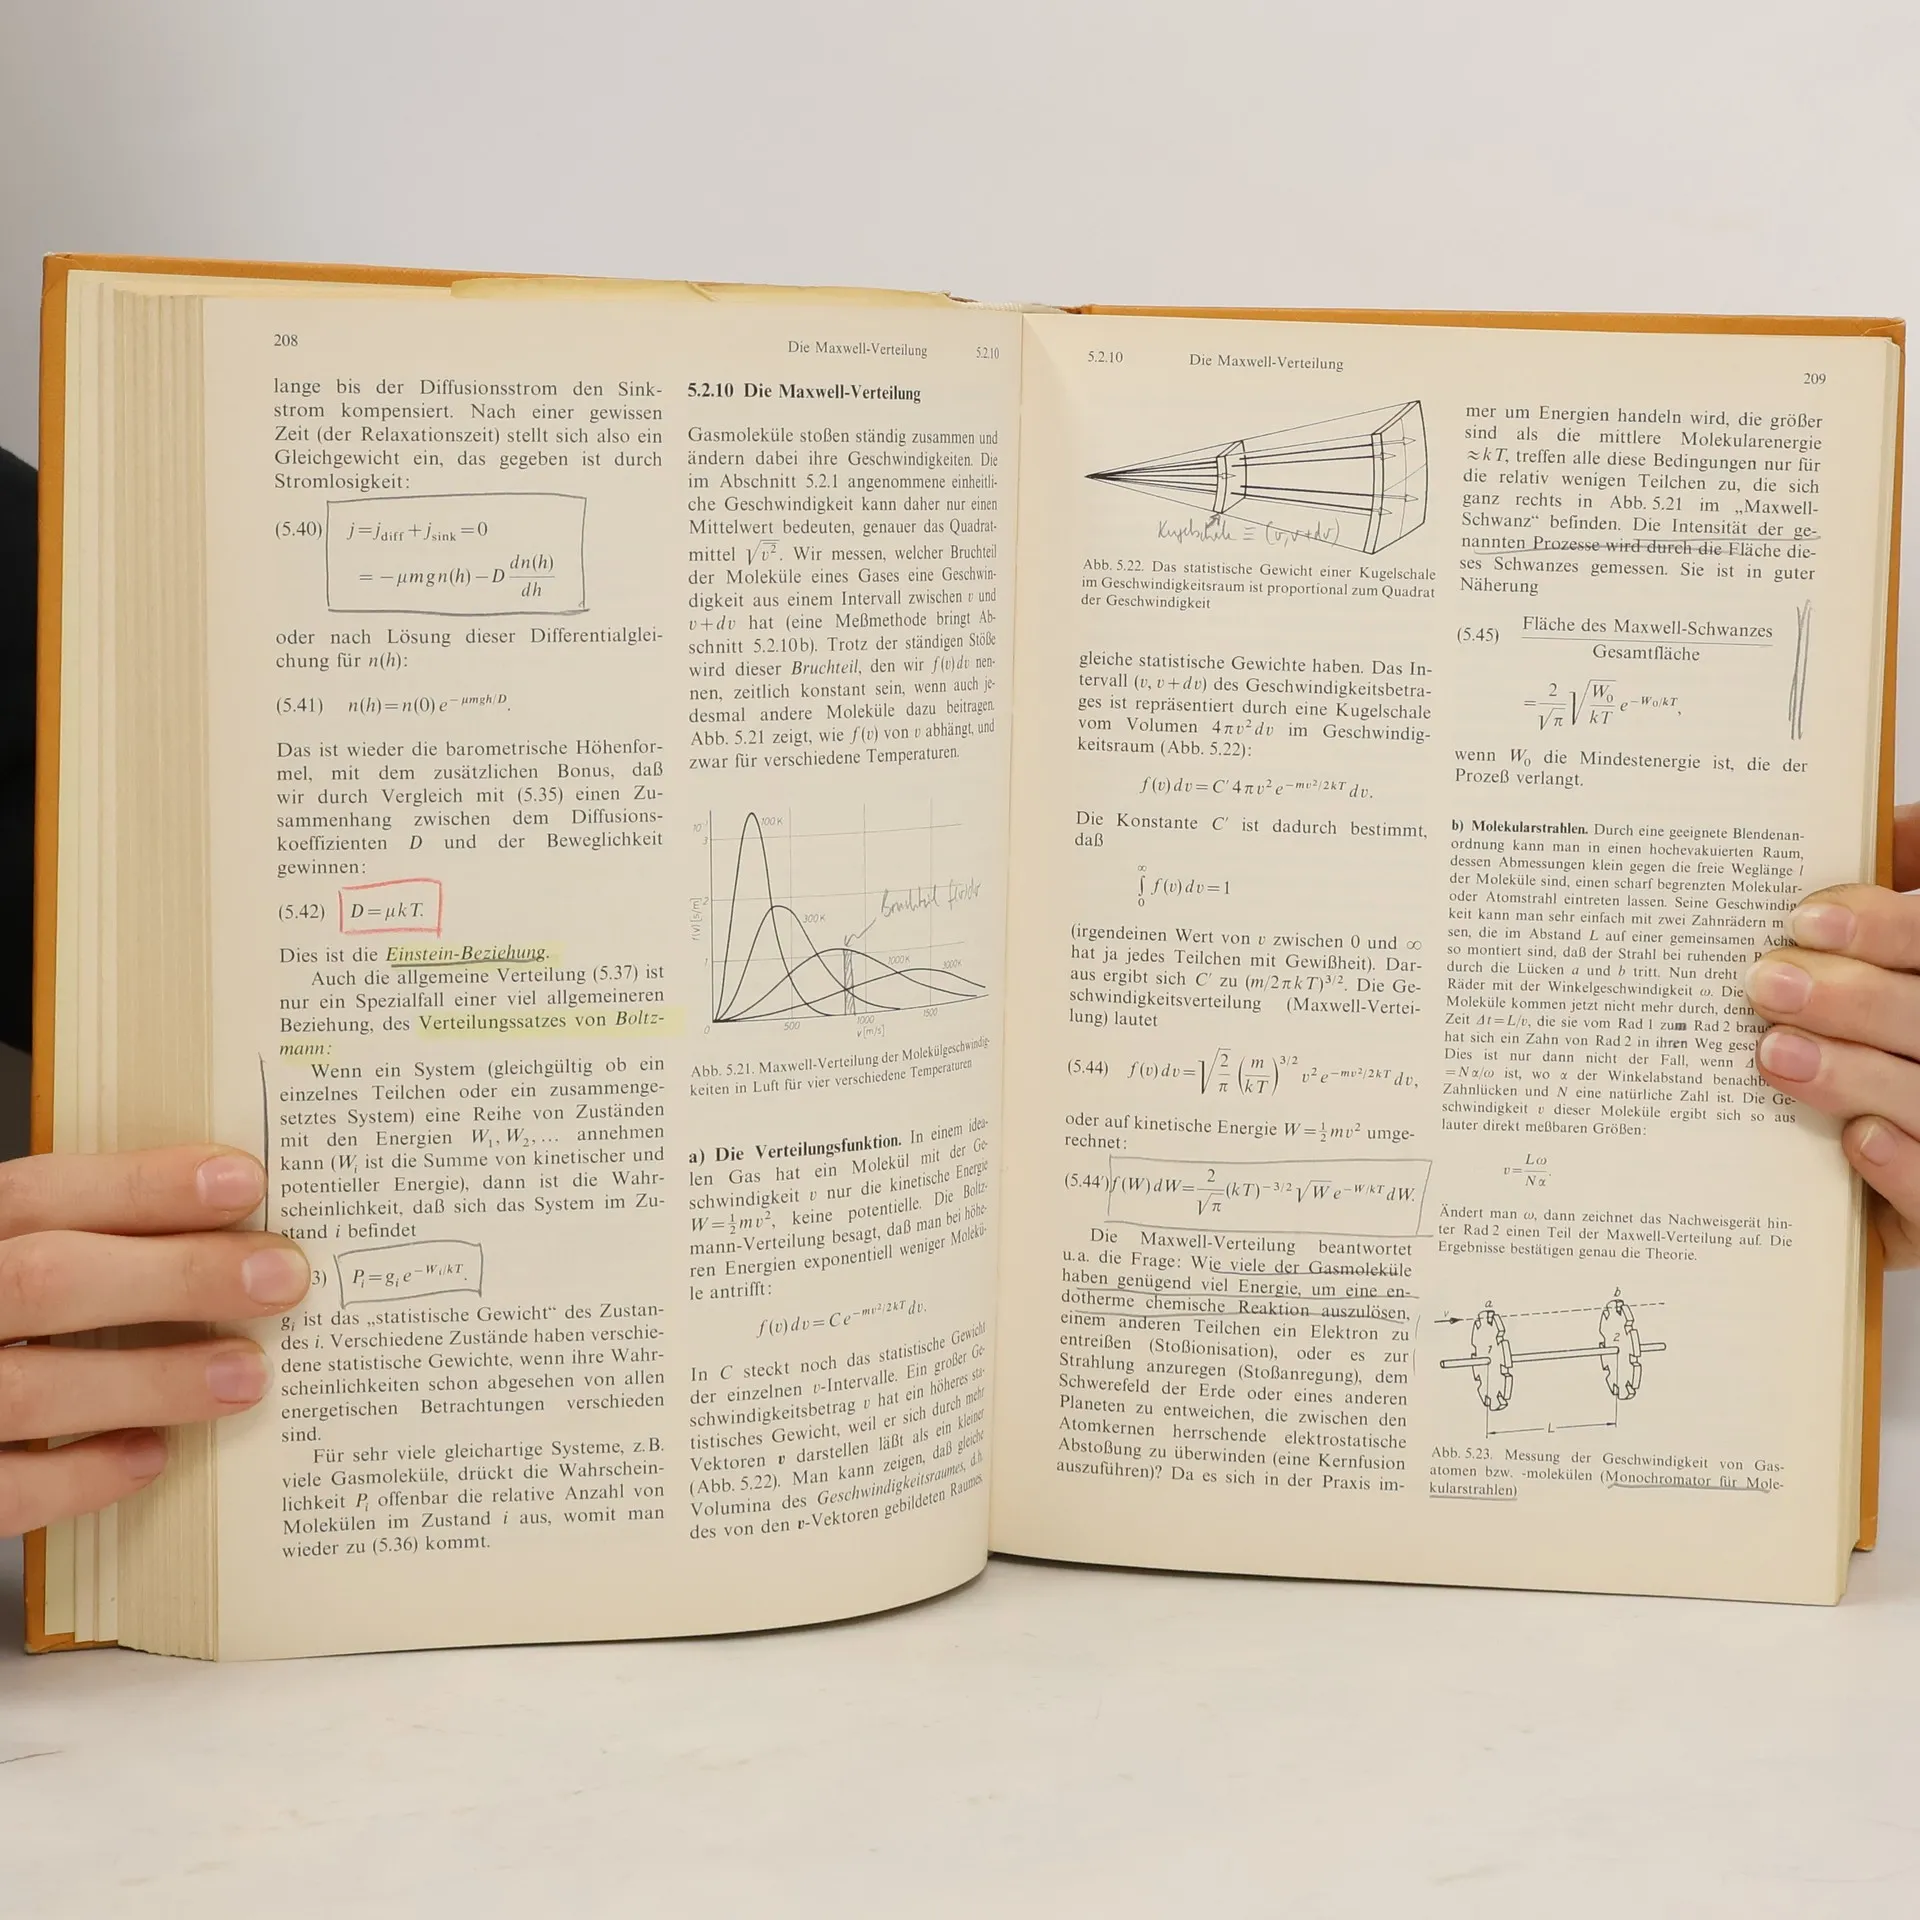 208
Die Maxwell-Verteilung 5.2.10
lange bis der Diffusionsstrom den Sink-
strom kompensiert. Nach einer gewissen
Zeit (der Relaxationszeit) stellt sich also ein
Gleichgewicht ein, das gegeben ist durch
Stromlosigkeit:
(5.40) j=j_diff+j_sink=0
=−μmgn(h)−D dn(h)/dh
oder nach Lösung dieser Differentialglei-
chung für n(h):
(5.41) n(h)=n(0)e^{−μmgh/D}.
Das ist wieder die barometrische Höhenfor-
mel, mit dem zusätzlichen Bonus, daß
wir durch Vergleich mit (5.35) einen Zu-
sammenhang zwischen dem Diffusions-
koeffizienten D und der Beweglichkeit
gewinnen:
(5.42) D=μkT.
Dies ist die Einstein-Beziehung.
Auch die allgemeine Verteilung (5.37) ist
nur ein Spezialfall einer viel allgemeineren
Beziehung, des Verteilungssatzes von Boltz-
mann:
Wenn ein System (gleichgültig ob ein
einzelnes Teilchen oder ein zusammenge-
setztes System) eine Reihe von Zuständen
mit den Energien W₁, W₂, ... annehmen
kann (Wᵢ ist die Summe von kinetischer und
potentieller Energie), dann ist die Wahr-
scheinlichkeit, daß sich das System im Zu-
stand i befindet
3) Pᵢ=gᵢe^{−Wᵢ/kT}.
gᵢ ist das „statistische Gewicht“ des Zustan-
des i. Verschiedene Zustände haben verschie-
dene statistische Gewichte, wenn ihre Wahr-
scheinlichkeiten schon abgesehen von allen
energetischen Betrachtungen verschieden
sind.
Für sehr viele gleichartige Systeme, z.B.
viele Gasmoleküle, drückt die Wahrschein-
lichkeit Pᵢ offenbar die relative Anzahl von
Molekülen im Zustand i aus, womit man
wieder zu (5.36) kommt.
5.2.10 Die Maxwell-Verteilung
Gasmoleküle stoßen ständig zusammen und
ändern dabei ihre Geschwindigkeiten. Die
im Abschnitt 5.2.1 angenommene einheitli-
che Geschwindigkeit kann daher nur einen
Mittelwert bedeuten, genauer das Quadrat-
mittel √v̅². Wir messen, welcher Bruchteil
der Moleküle eines Gases eine Geschwin-
digkeit aus einem Intervall zwischen v und
v+dv hat (eine Meßmethode bringt Ab-
schnitt 5.2.10b). Trotz der ständigen Stöße
wird dieser Bruchteil, den wir f(v)dv nen-
nen, zeitlich konstant sein, wenn auch je-
desmal andere Moleküle dazu beitragen.
Abb. 5.21 zeigt, wie f(v) von v abhängt, und
zwar für verschiedene Temperaturen.
3
100K
2
300K
Bruchteil f(v)dv
1
1000K
3000K
0 500 1000 1500
v[m/s]
Abb. 5.21. Maxwell-Verteilung der Molekülgeschwindig-
keiten in Luft für vier verschiedene Temperaturen
a) Die Verteilungsfunktion. In einem idea-
len Gas hat ein Molekül mit der Ge-
schwindigkeit v nur die kinetische Energie
W=½mv², keine potentielle. Die Boltz-
mann-Verteilung besagt, daß man bei höhe-
ren Energien exponentiell weniger Molekü-
le antrifft:
f(v)dv=Ce^{−mv²/2kT}dv.
In C steckt noch das statistische Gewicht
der einzelnen v-Intervalle. Ein großer Ge-
schwindigkeitsbetrag v hat ein höheres sta-
tistisches Gewicht, weil er sich durch mehr
Vektoren v darstellen läßt als ein kleiner
(Abb. 5.22). Man kann zeigen, daß gleiche
Volumina des Geschwindigkeitsraumes, d.h.
des von den v-Vektoren gebildeten Raumes
5.2.10 Die Maxwell-Verteilung
209
Kugelschale ≡ (v, v+dv)
Abb. 5.22. Das statistische Gewicht einer Kugelschale
im Geschwindigkeitsraum ist proportional zum Quadrat
der Geschwindigkeit
gleiche statistische Gewichte haben. Das In-
tervall (v, v+dv) des Geschwindigkeitsbetra-
ges ist repräsentiert durch eine Kugelschale
vom Volumen 4πv²dv im Geschwindig-
keitsraum (Abb. 5.22):
f(v)dv=C′4πv²e^{−mv²/2kT}dv.
Die Konstante C′ ist dadurch bestimmt,
daß
∫₀^∞ f(v)dv=1
(irgendeinen Wert von v zwischen 0 und ∞
hat ja jedes Teilchen mit Gewißheit). Dar-
aus ergibt sich C′ zu (m/2πkT)^{3/2}. Die Ge-
schwindigkeitsverteilung (Maxwell-Vertei-
lung) lautet
(5.44) f(v)dv=√(2/π) (m/kT)^{3/2} v²e^{−mv²/2kT}dv,
oder auf kinetische Energie W=½mv² umge-
rechnet:
(5.44′) f(W)dW=2/√π (kT)^{−3/2}√W e^{−W/kT}dW.
Die Maxwell-Verteilung beantwortet
u.a. die Frage: Wie viele der Gasmoleküle
haben genügend viel Energie, um eine en-
dotherme chemische Reaktion auszulösen,
einem anderen Teilchen ein Elektron zu
entreißen (Stoßionisation), oder es zur
Strahlung anzuregen (Stoßanregung), dem
Schwerefeld der Erde oder eines anderen
Planeten zu entweichen, die zwischen den
Atomkernen herrschende elektrostatische
Abstoßung zu überwinden (eine Kernfusion
auszuführen)? Da es sich in der Praxis im-
mer um Energien handeln wird, die größer
sind als die mittlere Molekularenergie
≈kT, treffen alle diese Bedingungen nur für
die relativ wenigen Teilchen zu, die sich
ganz rechts in Abb. 5.21 im „Maxwell-
Schwanz“ befinden. Die Intensität der ge-
nannten Prozesse wird durch die Fläche die-
ses Schwanzes gemessen. Sie ist in guter
Näherung
(5.45) Fläche des Maxwell-Schwanzes
Gesamtfläche
=2/√π √(W₀/kT) e^{−W₀/kT},
wenn W₀ die Mindestenergie ist, die der
Prozeß verlangt.
b) Molekularstrahlen. Durch eine geeignete Blendenan-
ordnung kann man in einen hochevakuierten Raum,
dessen Abmessungen klein gegen die freie Weglänge l
der Moleküle sind, einen scharf begrenzten Molekular-
oder Atomstrahl eintreten lassen. Seine Geschwindig-
keit kann man sehr einfach mit zwei Zahnrädern m
sen, die im Abstand L auf einer gemeinsamen Achs
so montiert sind, daß der Strahl bei ruhenden
durch die Lücken a und b tritt. Nun dreht
Räder mit der Winkelgeschwindigkeit ω. Die
Moleküle kommen jetzt nicht mehr durch, denn
Zeit Δt=L/v, die sie vom Rad 1 zum Rad 2 brau
hat sich ein Zahn von Rad 2 in ihren Weg gesc
Dies ist nur dann nicht der Fall, wenn
=Nα/ω ist, wo α der Winkelabstand benachb
Zahnlücken und N eine natürliche Zahl ist. Die Ge-
schwindigkeit v dieser Moleküle ergibt sich so aus
lauter direkt meßbaren Größen:
v=Lω/Nα.
Ändert man ω, dann zeichnet das Nachweisgerät hin-
ter Rad 2 einen Teil der Maxwell-Verteilung auf. Die
Ergebnisse bestätigen genau die Theorie.
v a b
1 2
L
Abb. 5.23. Messung der Geschwindigkeit von Gas-
atomen bzw. -molekülen (Monochromator für Mole-
kularstrahlen)